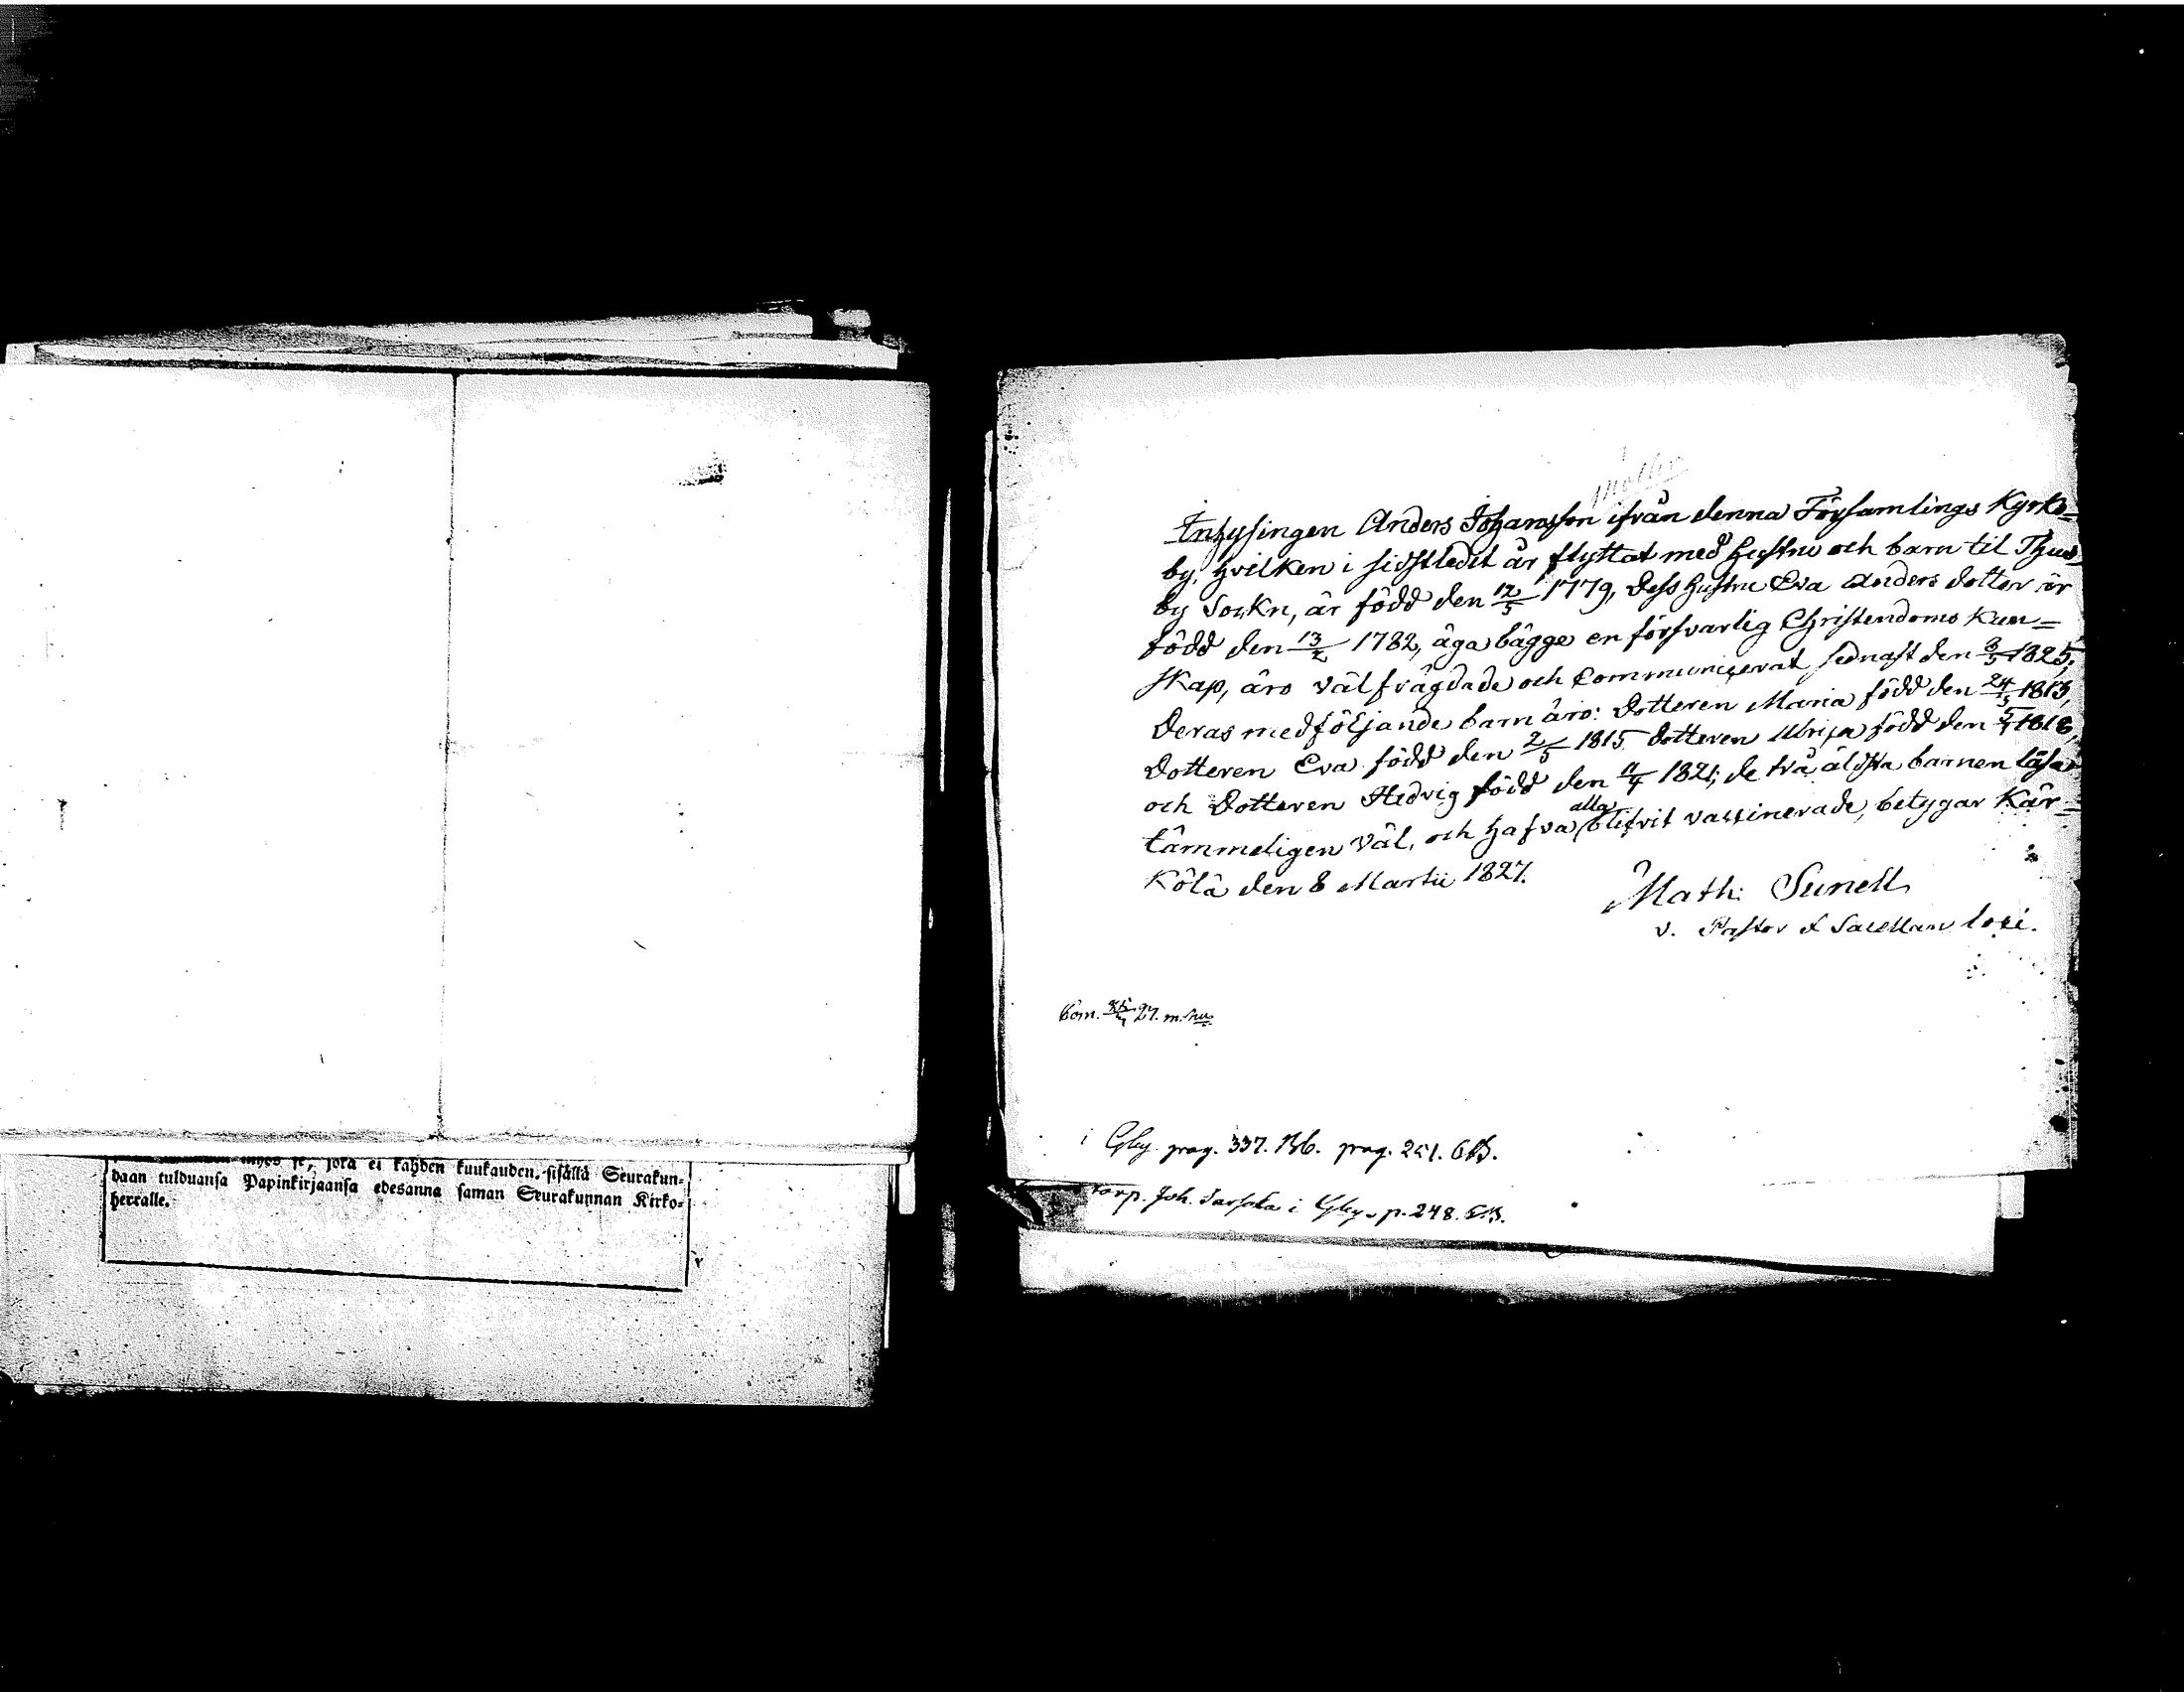 daan tulduansa Papinkirjaansa edesanna saman Seurakunnan Kirko-
herralle.
Inhysingen Anders Johansson ifrån denna Församlings Kyrko=
by, hvilken i sidstledit år flyttat med hustru och barn til Thus
by Sockn, är född den 12/5 1779, dess hustru Eva Anders dotter är
född den 13/2 1782, äga bägge en försvarlig Christendoms Kun=
skap, äro välfrägdade och Communicerat sednast den 8/5 1825;
Deras medföljande barn äro: Dotteren Maria född den 24/5 1813,
Dotteren Eva född den 2/5 1815 Dotteren Ulrica född den 5/7 1818,
och Dotteren Hedvig född den 4/4 1821; de två äldsta barnen läsa
tämmeligen väl, och hafva alla blifvit vaccinerade, betygar Kär=
kölä den 8 Martii 1827.
Math: Sunell
v. Pastor & Sacellan loci.
Com. 27. m. hu
i Gby pag. 337. pag. 251. C.B.
torp. Joh. i Gby p. 248. C.B.